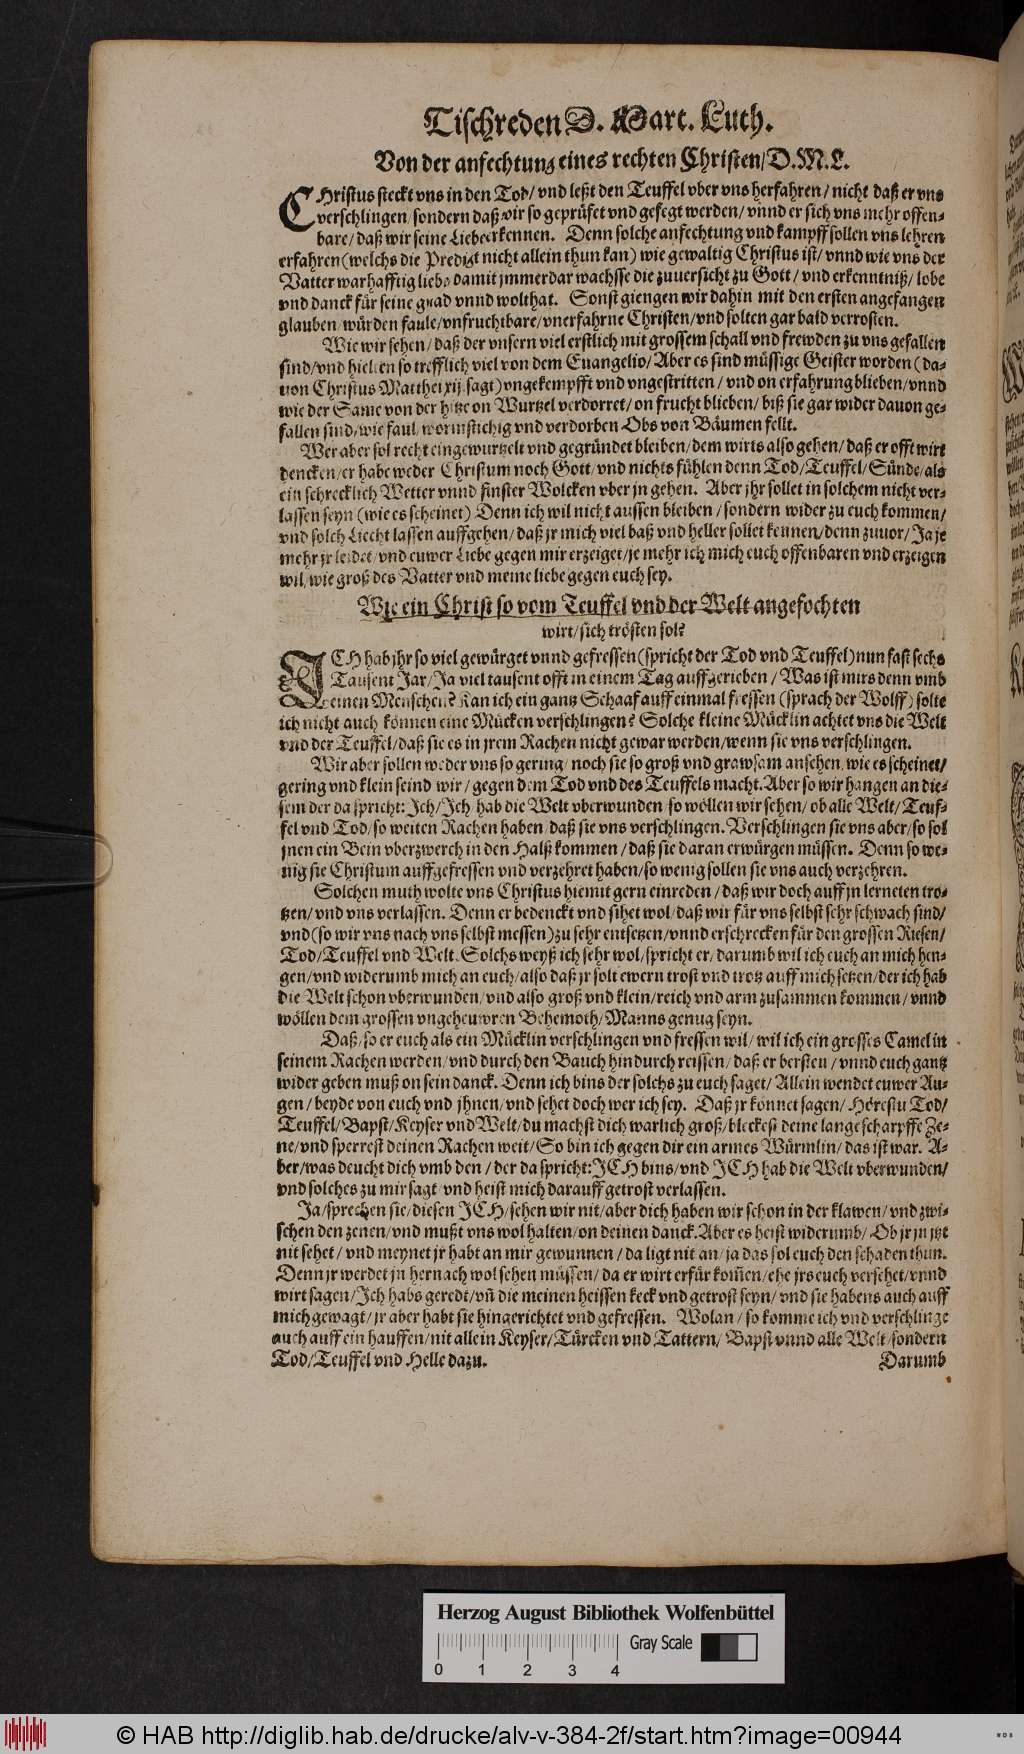 Tischreden D. Mart. Luth.
Von der anfechtung eines rechten Christen/ D. M. L.
CHristus steckt vns in den Tod/ vnd leßt den Teuffel vber vns herfahren / nicht daß er vns
verschlingen/ sondern daß wir so geprüfet vnd gefegt werden/ vnnd er sich vns mehr offen-
bare/ daß wir seine Liebe erkennen. Denn solche anfechtung vnd kampff sollen vns lehren
erfahren (welchs die Predigt nicht allein thun kan) wie gewaltig Christus ist/ vnnd wie vns der
Vatter warhafftig liebe damit jmmerdar wachsse die zuuersicht zu Gott / vnd erkenntniß/ lobe
vnd danck für seine gnad vnnd wolthat. Sonst giengen wir dahin mit den ersten angefangen
glauben/ würden faule/ vnfruchtbare/ vnerfahrne Christen/ vnd solten gar bald verrosten.
Wie wir sehen/ daß der vnsern viel erstlich mit grossem schall vnd frewden zu vns gefallen
sind/ vnd hielten so trefflich viel von dem Euangelio/ Aber es sind müssige Geister worden (da-
uon Christus Matthei xij. sagt) vngekempfft vnd vngestritten / vnd on erfahrung blieben/ vnnd
wie der Same von der hitze on Wurtzel verdorret/ on frucht blieben/ biß sie gar wider dauon ge-
fallen sind/ wie faul/ wormstichig vnd verdorben Obs von Bäumen fellt.
Wer aber sol recht eingewurtzelt vnd gegründet bleiben/ dem wirts also gehen/ daß er offt wirt
dencken/ er habe weder Christum noch Gott/ vnd nichts fühlen denn Tod/ Teuffel/ Sünde/ als
ein schrecklich Wetter vnnd finster Wolcken vber jn gehen. Aber jhr sollet in solchem nicht ver-
lassen seyn (wie es scheinet) Denn ich wil nicht aussen bleiben / sondern wider zu euch kommen/
vnd solch Liecht lassen auffgehen/ daß jr mich viel baß vnd heller sollet kennen/ denn zuuor/ Ja je
mehr jr leidet/ vnd euwer Liebe gegen mir erzeiget/ je mehr ich mich euch offenbaren vnd erzeigen
wil/ wie groß des Vatter vnd meine liebe gegen euch sey.
Wie ein Christ so vom Teuffel vnd der Welt angefochten
wirt/ sich trösten sol?
ICH hab jhr so viel gewürget vnnd gefressen (spricht der Tod vnd Teuffel) nun fast sechs
Tausent Jar/ Ja viel tausent offt in einem Tag auffgerieben / Was ist mirs denn vmb
einen Menschen? Kan ich ein gantz Schaaf auff einmal fressen (sprach der Wolff) solte
ich nicht auch können eine Mücken verschlingen? Solche kleine Mücklin achtet vns die Welt
vnd der Teuffel/ daß sie es in jrem Rachen nicht gewar werden/ wenn sie vns verschlingen.
Wir aber sollen weder vns so gering/ noch sie so groß vnd grawsam ansehen/ wie es scheinet/
gering vnd klein seind wir / gegen dem Tod vnd des Teuffels macht. Aber so wir hangen an die-
sem der da spricht: Ich/ Ich hab die Welt vberwunden/ so wöllen wir sehen/ ob alle Welt/ Teuf-
fel vnd Tod/ so weiten Rachen haben/ daß sie vns verschlingen. Verschlingen sie vns aber/ so sol
jnen ein Bein vberzwerch in den Halß kommen / daß sie daran erwürgen müssen. Denn so we-
nig sie Christum auffgefressen vnd verzehret haben/ so wenig sollen sie vns auch verzehren.
Solchen muth wolte vns Christus hiemit gern einreden / daß wir doch auff jn lerneten tro-
tzen/ vnd vns verlassen. Denn er bedenckt vnd sihet wol/ daß wir für vns selbst sehr schwach sind/
vnd (so wir vns nach vns selbst messen) zu sehr entsetzen/ vnnd erschrecken für den grossen Riesen/
Tod/ Teuffel vnd Welt. Solchs weyß ich sehr wol/ spricht er/ darumb wil ich euch an mich hen-
gen/ vnd widerumb mich an euch/ also daß jr solt ewern trost vnd trotz auff mich setzen/ der ich hab
die Welt schon vberwunden/ vnd also groß vnd klein/ reich vnd arm zusammen kommen / vnnd
wöllen dem grossen vngeheuwren Behemoth/ Manns genug seyn.
Daß/ so er euch als ein Mücklin verschlingen vnd fressen wil/ wil ich ein grosses Camel in
seinem Rachen werden/ vnd durch den Bauch hindurch reissen/ daß er bersten / vnnd euch gantz
wider geben muß on sein danck. Denn ich bins der solchs zu euch saget/ Allein wendet euwer Au-
gen / beyde von euch vnd jhnen/ vnd sehet doch wer ich sey. Daß jr könnet sagen/ Hörestu Tod/
Teuffel/ Bapst/ Keyser vnd Welt/ du machst dich warlich groß/ bleckest deine lange scharpffe Ze-
ne/ vnd sperrest deinen Rachen weit/ So bin ich gegen dir ein armes Würmlin/ das ist war. A-
ber/ was deucht dich vmb den / der da spricht: ICH bins/ vnd ICH hab die Welt vberwunden/
vnd solches zu mir sagt/ vnd heist mich darauff getrost verlassen.
Ja/ sprechen sie/ diesen ICH/ sehen wir nit/ aber dich haben wir schon in der klawen/ vnd zwi-
schen den zenen/ vnd mußt vns wol halten/ on deinen danck. Aber es heist widerumb/ Ob jr jn jtzt
nit sehet / vnd meynet jr habt an mir gewunnen / da ligt nit an/ ja das sol euch den schaden thun.
Denn jr werdet jn hernach wol sehen müssen/ da er wirt erfür kom̃en/ ehe jrs euch versehet/ vnnd
wirt sagen/ Ich habs geredt/ vñ die meinen heissen keck vnd getrost seyn/ vnd sie habens auch auff
mich gewagt/ jr aber habt sie hingerichtet vnd gefressen. Wolan / so komme ich vnd verschlinge
auch auff ein hauffen/ nit allein Keyser/ Türcken vnd Tattern/ Bapst vnnd alle Welt/ sondern
Tod/ Teuffel vnd Helle dazu. Darumb
Herzog August Bibliothek Wolfenbüttel
Gray Scale
0 1 2 3 4
© HAB http://diglib.hab.de/drucke/alv-v-384-2f/start.htm?image=00944